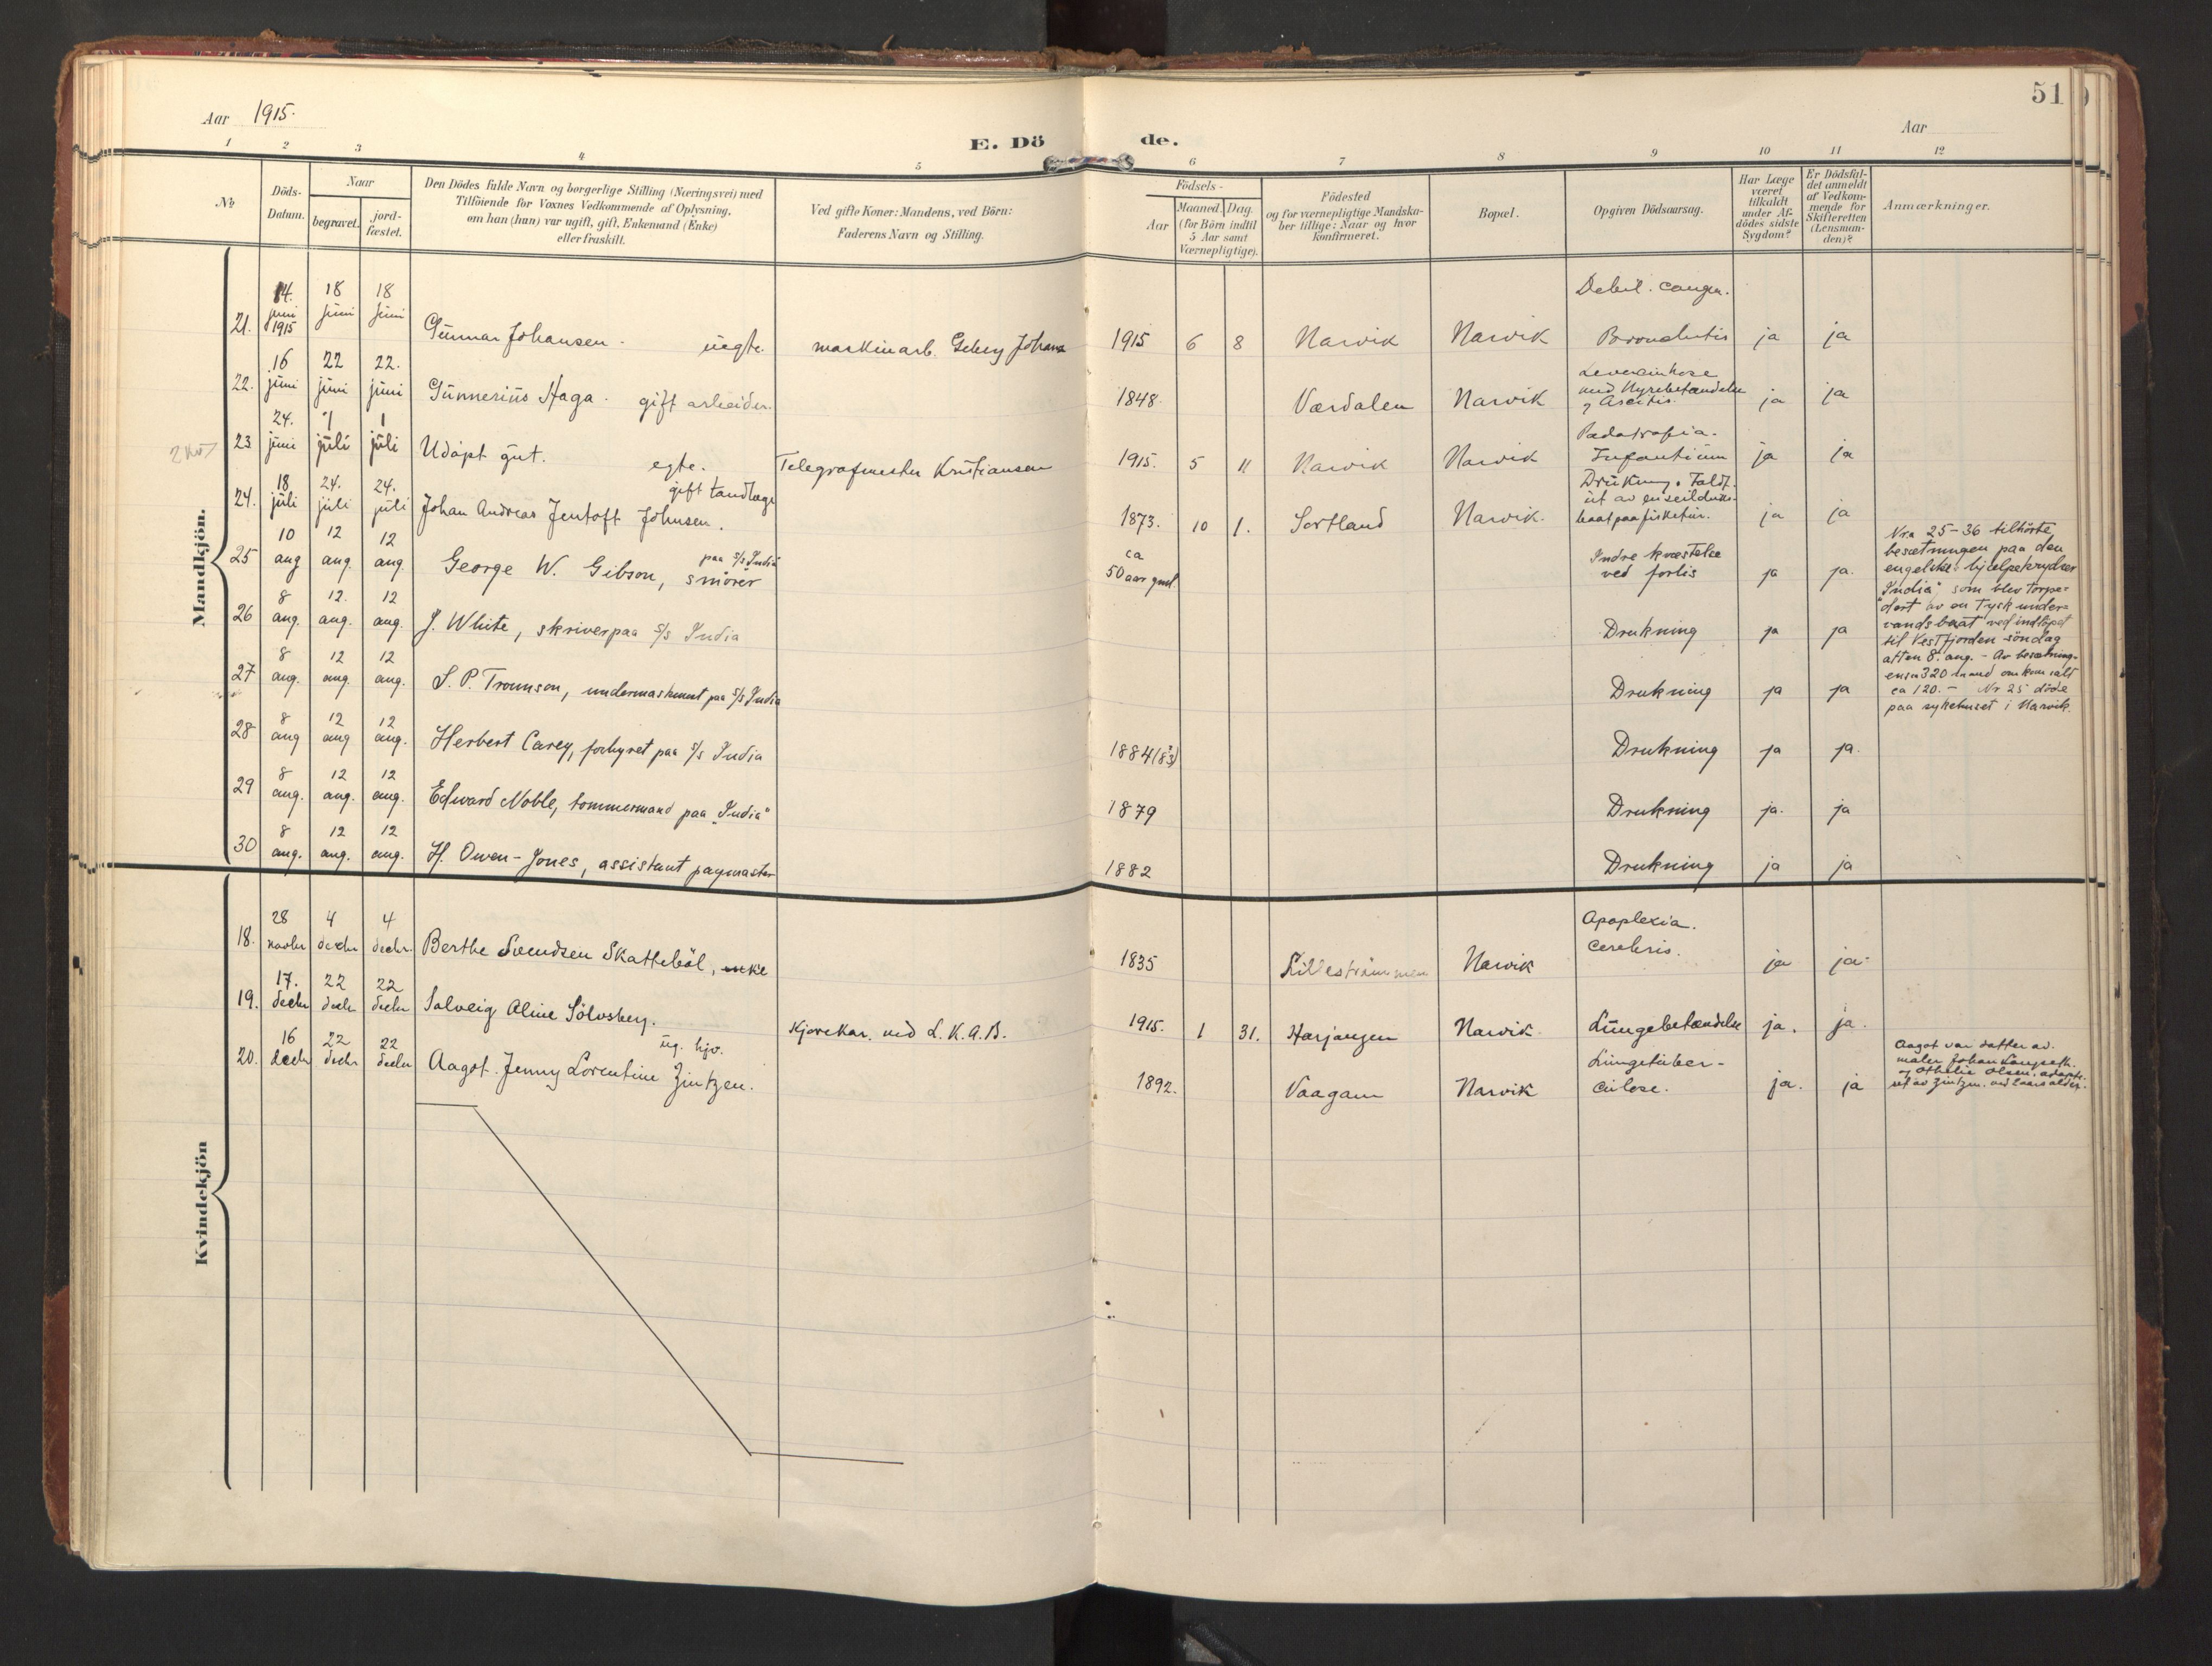 51
Aar 1915.
Aar
E. Dö de.
1 2 3 4 5 6 7 8 9 10 11 12
No
Döds-
Datum.
Naar
begravet.
jord-
fæstet.
Den Dödes fulde Navn og borgerlige Stilling (Næringsvei) med
Tilföiende for Voxnes Vedkommende af Oplysning,
om han (hun) var ugift, gift, Enkemand (Enke)
eller fraskilt.
Ved gifte Koner: Mandens, ved Börn:
Faderens Navn og Stilling.
Födsels-
Aar
Maaned. Dag.
(for Börn indtil
5 Aar samt
Værnepligtige).
Födested
og for værnepligtige Mandska-
ber tillige: Naar og hvor
konfirmeret.
Bopæl.
Opgiven Dödsaarsag.
Har Læge
været
tilkaldt
under Af-
dödes sidste
Sygdom?
Er Dödsfal-
det anmeldt
af Vedkom-
mende for
Skifteretten
(Lensman-
den)?
Anmærkninger.
Mandkjön.
21. 14. juni 1915 18 juni 18 juni Gunnar Johansen - uegte. maskinarb. Johans 1915 6 8 Narvik Narvik Debil. congen. Bronchitis ja ja
22. 16 juni 22 juni 22. juni Gunnerius Haga. gift arbeider. 1848. Værdalen Narvik Levercirrhose med Nyrebetændelse og Ascitis. ja ja
23 24. juni 1 juli 1 juli Udöpt gut. egte. Telegrafmester Kristiansen 1915. 5 11 Narvik Narvik Pædatrofia. Infantium ja ja
24. 18 juli 24. juli 24. juli Johan Andreas Jentoft Johnsen. gift tandlæge 1873. 10 1. Sortland Narvik. Drukning. Faldt ut av en seilduks- baat paa fisketur. ja ja
25 10 aug 12 aug. 12 aug. George W. Gibson, smörer paa S/S India ca 50 aar gml Indre kvæstelse ved forlis ja ja.
26 8 aug. 12. aug. 12 aug. J. White, skriver paa S/S India Drukning ja ja
27 8 aug. 12 aug. 12 aug. S. P. Trounson, undermaskinist paa S/S India Drukning ja ja
28 8 aug 12 aug 12 aug. Herbert Carey, forhyret paa S/S India 1884 (83?) Drukning ja ja.
29 8 aug. 12 aug. 12 aug. Edward Noble, tømmermand paa "India" 1879 Drukning ja. ja
30 8 aug. 12 aug. 12 aug. H. Owen-Jones, assistant paymaster 1882 Drukning ja ja
Nra 25-36 tilhörte
besætningen paa den
engelske hjælpekrydser
"India", som blev torpe-
dert av en tysk under-
vandsbaat ved indlöpet
til Vestfjorden söndag
aften 8. aug. - Av besætning-
ens 320 mand omkom ialt
ca 120. - Nr 25 döde
paa sykehuset i Narvik.
Kvindekjön
18. 28 novbr 4 decbr 4 decbr. Berthe Svendsen Skatteböl, enke 1835 Lilleströmmen Narvik Apoplexia. cerebris. ja ja.
19. 17. decbr 22 decbr 22 decbr Solveig Aline Sölvsberg. Kjörekar. ved L.K.A.B. 1915. 1 31. Herjangen Narvik. Lungebetændelse ja. ja.
20. 16 decbr 22 decbr 22 decbr Aagot. Jenny Lorentine Zintzen. ug. hjv. 1892. Vaagan Narvik Lungetuber- culose. ja. ja
Aagot var datter av.
maler Johan
og Othelie Olsen, adopte-
ret av Zintzen.